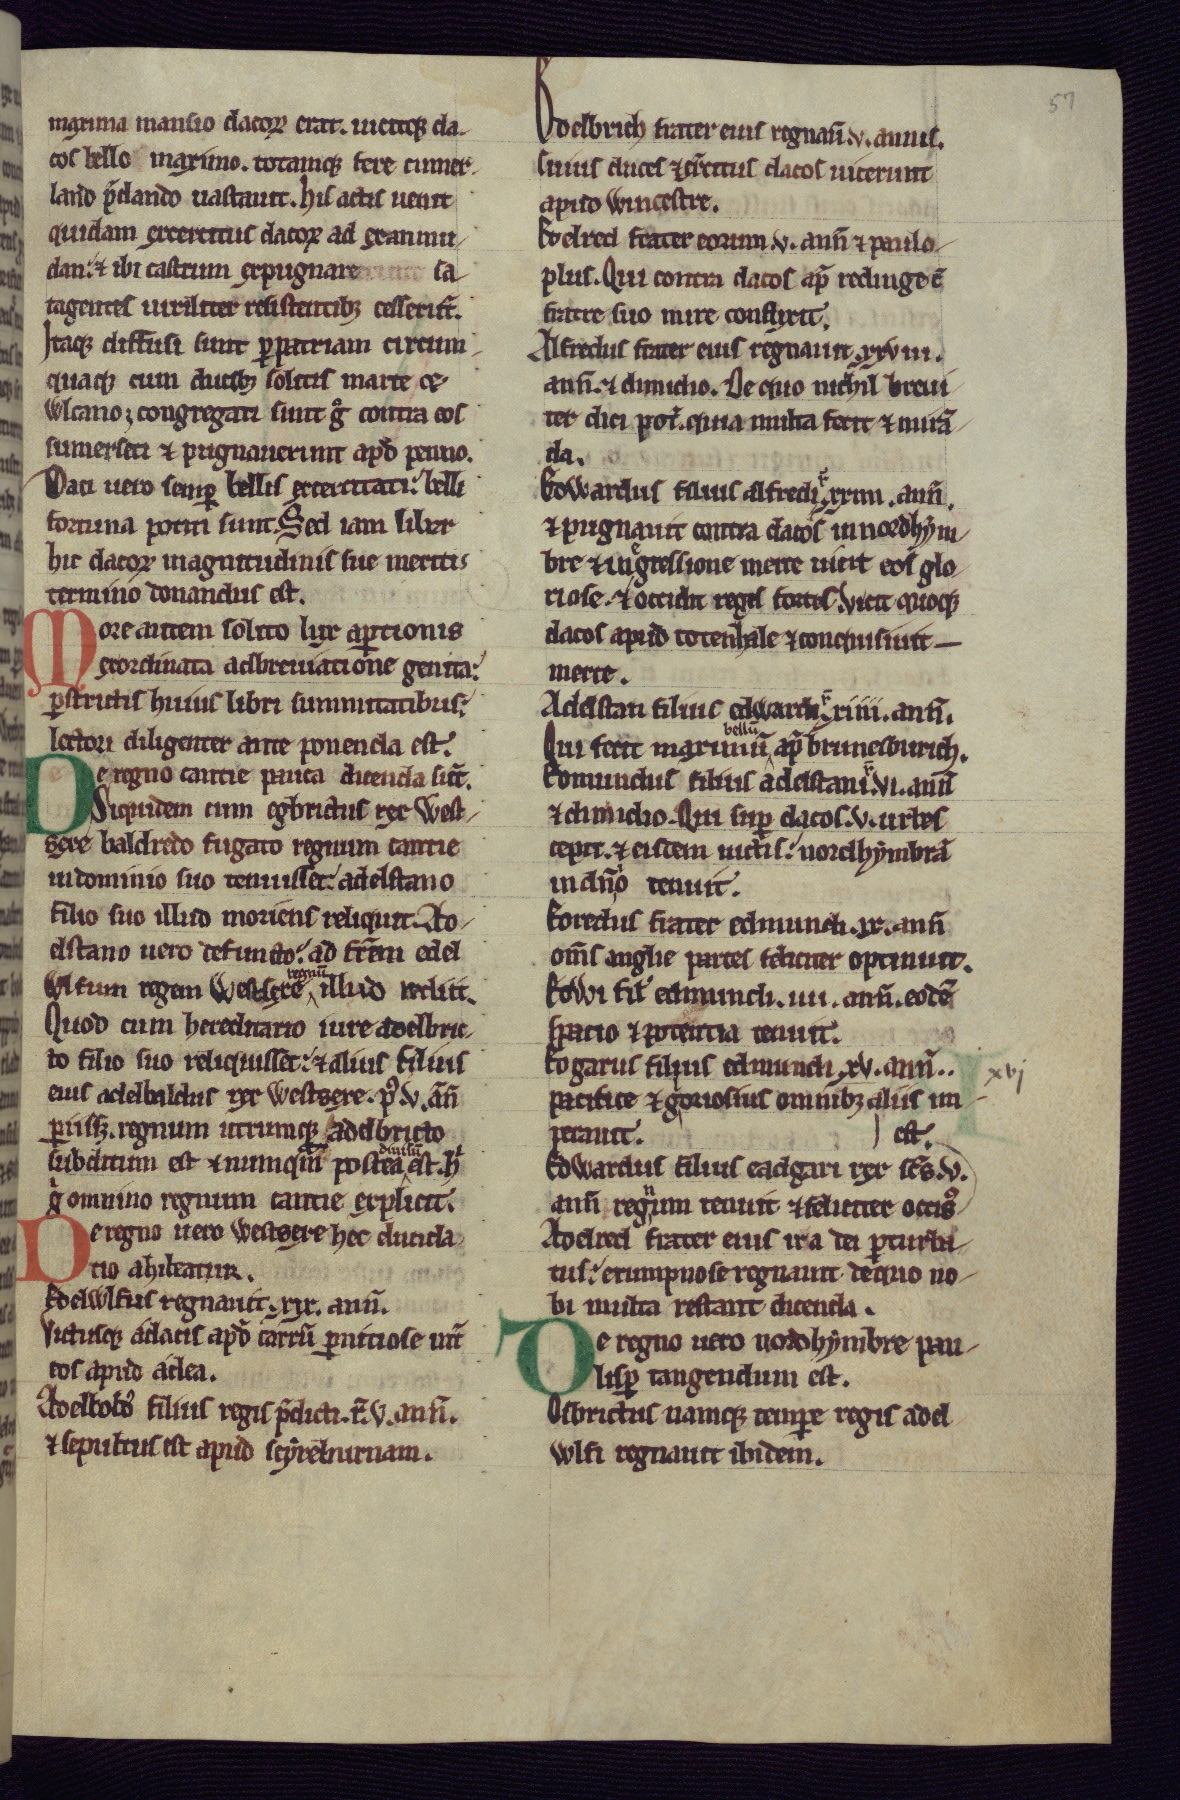 57
maxima mansio dacoꝝ erat. uicitqꝫ da-
cos bello maximo. totamqꝫ fere cumer-
land p̃dando uastauit. his actis uenit
quidam exercitus dacoꝝ ad granmu-
dan: ⁊ ibi castrum expugnare sa-
tagentes uiriliter resistentibꝫ cesserunt̃.
Itaqꝫ diffusi sunt ꝑ patriam circum-
quaqꝫ cum ducibꝫ solitis marte ⁊
wlcano; congregati sunt g̊ contra eos
sumerseti ⁊ pugnauerunt apd̃ penno.
Daci uero semꝑ bellis exercitati: belli
fortuna potiti sunt. Sed iam liber
hic dacoꝝ magnitudinis sue meritis
termino donandus est.
More autem solito lux aꝑtionis
exordinata adbreuiatione genita:
ꝑstrictis huius libri summitatibus:
lectori diligenter ante ponenda est.
De regno cantie pauca dicenda sũt.
Siquidem cum egbrictus rex west-
sexe baldredo fugato regnum cantie
in dominio suo tenuisset: adelstano
filio suo illud moriens reliquit. Ad-
elstano uero defuncto: ad fr̃em edel
wlfum regem westsexe regnũ illud rediit.
Quod cum hereditario iure adelbric-
to filio suo reliquisset: ⁊ alius filius
eius adelbaldus rex westsexe. p᷒ .v. añ
ꝑiissꝫ. regnum utrumqꝫ adelbricto
subditum est ⁊ numqͣm postea diuisũ est. h̾
g̊ omnino regnum cantie explicit.
De regno uero westsexe hec elucida-
tio ahibeatur.
Edelwlfus regnauit .xix. anñ.
Victusqꝫ a dacis apd̃ carrũ ꝑnitiose uic̃
eos apud aclea.
Adelbold᷒ filius regis p̃dicti. r̃ .v. anñ.
⁊ sepultus est apud scyreburnam.
Edelbrich frater eius regnauit̃ .v. annis.
Cuius duces ⁊ ex̃citus dacos uicerunt
apud wincestre.
Edelred frater eorum .v. anñ ⁊ paulo
plus. Qui contra dacos ap̃ redinge c̃
fratre suo mire conflixit.
Alfredus frater eius regnauit .xxviii.
anñ. ⁊ dimidio. De quo nichil breui
ter dici pot̃. quia multa fecit ⁊ mirã
da.
Edwardus filius alfredi r̃ .xxiiii. anñ.
⁊ pugnauit contra dacos in nordhym-
bre ⁊ ingressione merce uicit eos glo-
riose. ⁊ occidit reges fortes. Vicit quoqꝫ
dacos apud totenhale ⁊ conquisiuit
merce.
Adelstan filius edwardi r̃ .xiiii. anñ.
Qui fecit maximũ bellũ ap̃ brunesburich.
Edmundus filius adelstani r̃ .vi. anñ
⁊ dimidio. Qui suꝑ dacos .v. urbes
cepit. ⁊ eisdem uictis: nordhymbrã
in dñio tenuit.
Edredus frater edmundi .ix. anñ
om̃s anglie partes feliciter optinuit.
Edwi fil᷒ edmundi .iiii. anñ. eodẽ
spacio ⁊ potentia tenuit.
Edgarus filius edmundi .xv. anñ..
xvj
pacifice ⁊ gloriosius omnibꝫ aliis im
perauit.
Edwardus filius eadgari rex sc̃s .v.
anñ regnum tenuit ⁊ feliciter occis᷒ est.
Adelred frater eius ira dei ꝑturba-
tus: erumpnose regnauit. de quo no-
bi multa restant dicenda.
De regno uero nordhymbre pau-
lisꝑ tangendum est.
Osbrictus namqꝫ tempore regis adel
wlfi regnauit ibidem.